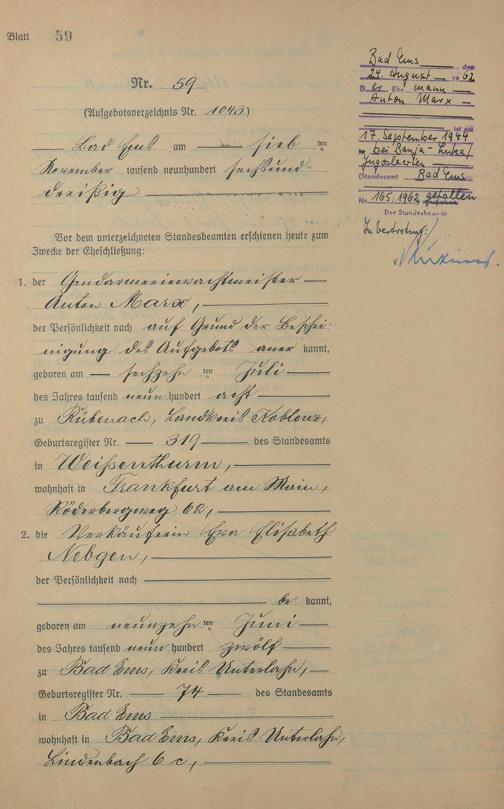 Blatt 59
Nr. 59
(Aufgebotsverzeichnis Nr. 1043)
Bad Ems am sieb ten
November tausend neunhundert sechsund-
dreißig
Vor dem unterzeichneten Standesbeamten erschienen heute zum
Zwecke der Eheschließung:
1. der Gendarmeriewachtmeister
Anton Marx,
der Persönlichkeit nach auf Grund der Beschei-
nigung des Aufgebots aner kannt,
geboren am sechzehn ten Juli
des Jahres tausend neun hundert acht
zu Rübenach, Landkreis Koblenz,
Geburtsregister Nr. 319 des Standesamts
in Weißenthurm,
wohnhaft in Frankfurt am Main,
Röderbergweg 62,
2. die Verkäuferin Eva Elisabeth
Nebgen,
der Persönlichkeit nach
be kannt,
geboren am neunzehn ten Juni
des Jahres tausend neun hundert zwölf
zu Bad Ems, Kreis Unterlahn,
Geburtsregister Nr. 74 des Standesamts
in Bad Ems
wohnhaft in Bad Ems, Kreis Unterlahn,
Lindenbach 6 c,
Bad Ems den
24. August 1962
D er Ehe mann
Anton Marx
ist am
17. September 1944
bei Banja-Luka/
Jugoslawien
(Standesamt Bad Ems
Nr. 165/1962 gefallen
Der Standesbeamte
In Vertretung: